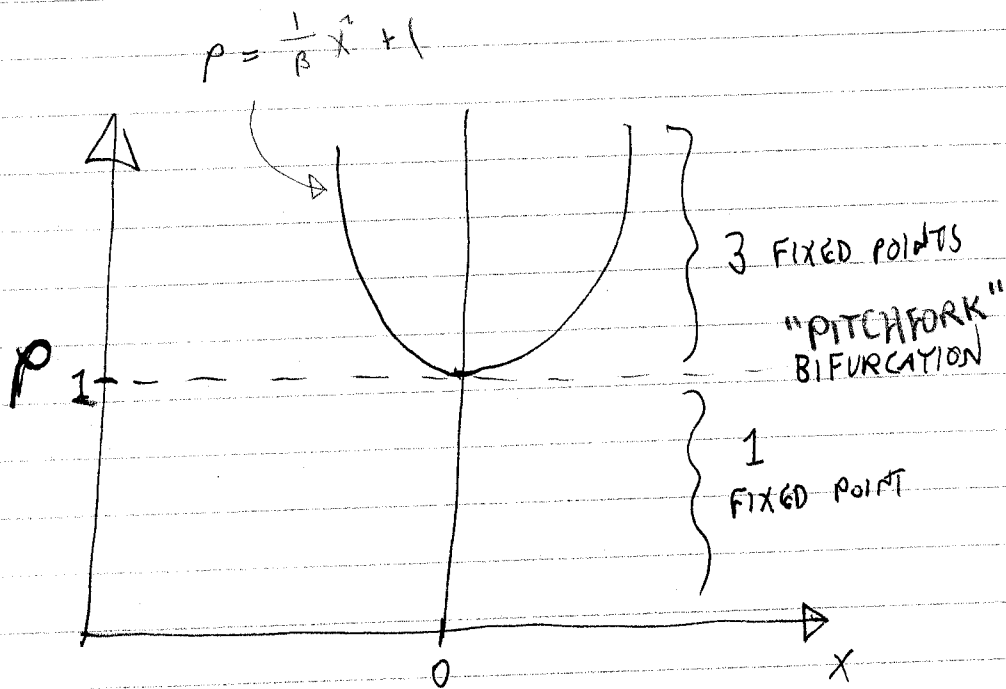 ρ = 1/β x² + 1
3 FIXED POINTS
"PITCHFORK"
BIFURCATION
ρ
1
1
FIXED POINT
0
x